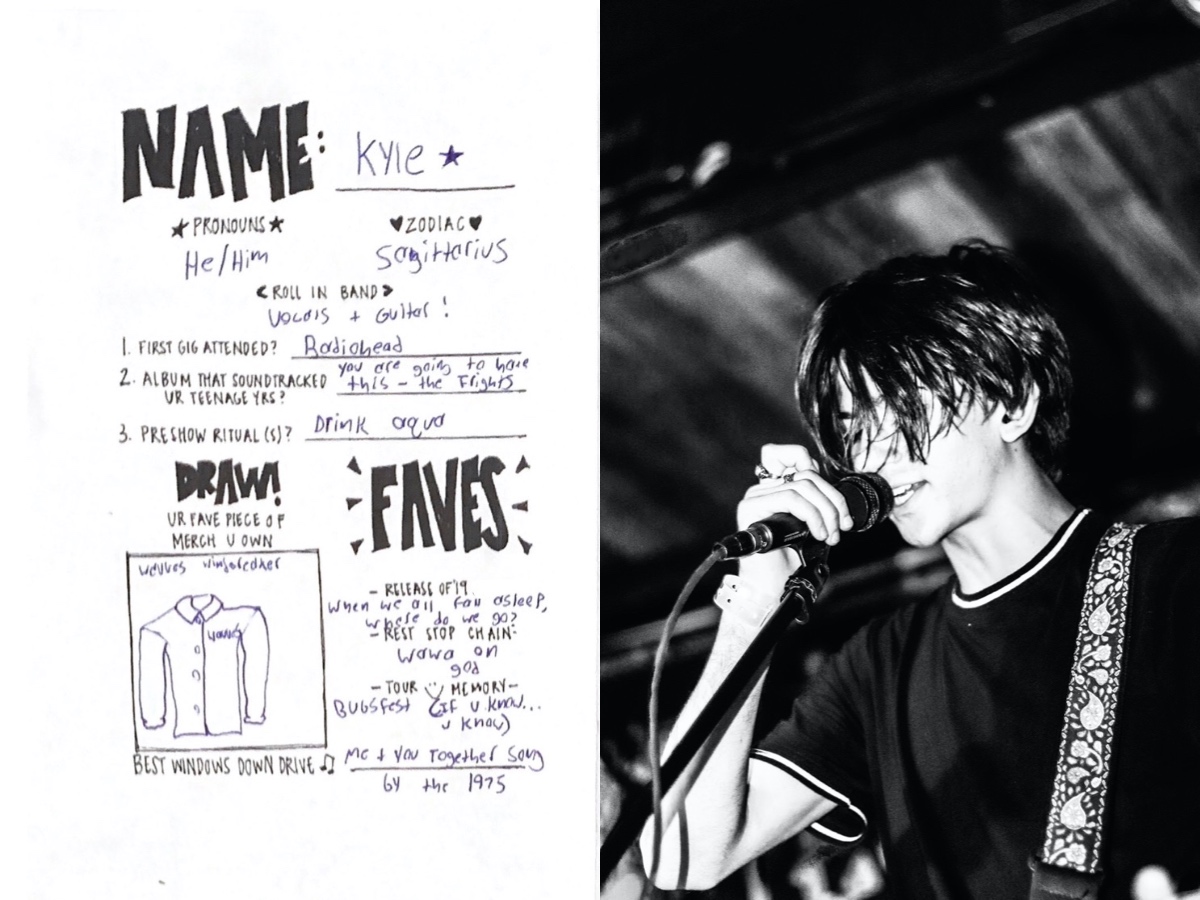 NAME: Kyle ★
★PRONOUNS★
He/Him
♥ZODIAC♥
Sagittarius
<ROLL IN BAND>
Vocals + Guitar!
1. FIRST GIG ATTENDED? Radiohead
2. ALBUM THAT SOUNDTRACKED UR TEENAGE YRS? you are going to hate this - the Frights
3. PRESHOW RITUAL(S)? Drink aqua
DRAW!
UR FAVE PIECE OF
MERCH U OWN
wavves windbreaker
wavves
FAVES
- RELEASE OF '19
When we all fall asleep,
where do we go?
- REST STOP CHAIN-
Wawa on
god
- TOUR MEMORY-
BUGSfest (If u know...
u know)
BEST WINDOWS DOWN DRIVE ♫ Me + You Together Song
by the 1975